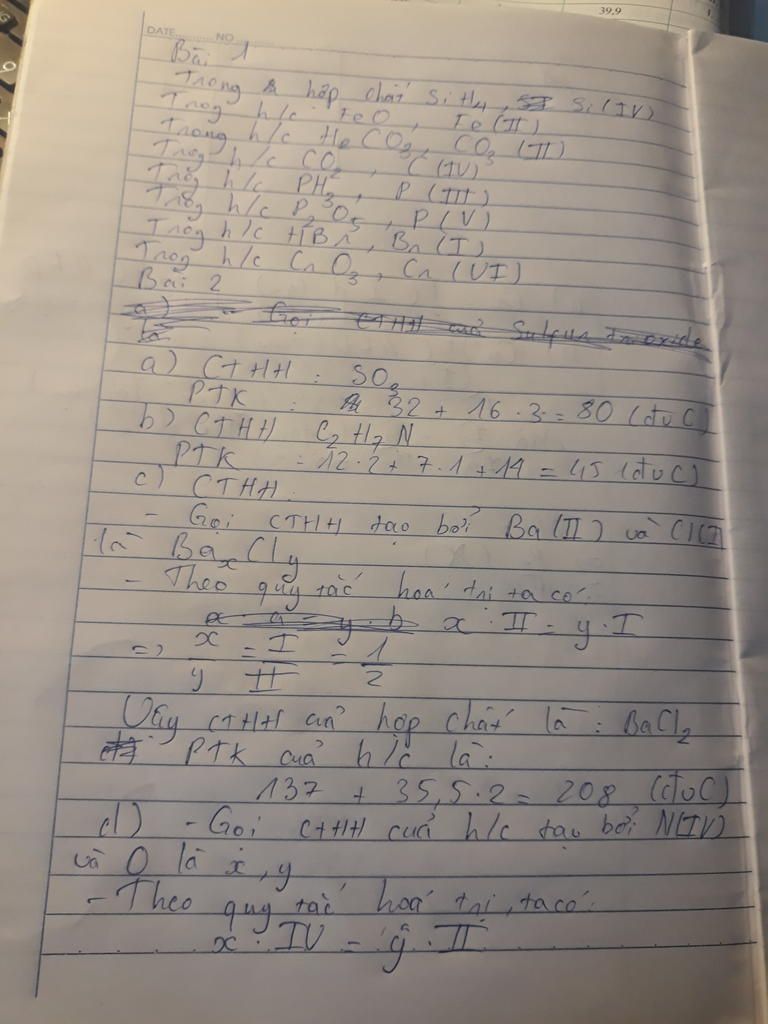 39,9
DATE NO
Bài 1
Trong hợp chất SiH4, Si(IV)
Trog h/c FeO, Fe(II)
Trong h/c H2CO3, CO3(II)
Trog h/c CO2, C(IV)
Trog h/c PH3, P(III)
Trog h/c P2O5, P(V)
Trog h/c HBr, Br(I)
Trog h/c CrO3, Cr(VI)
Bài 2
a) Gọi CTHH cuả Sulfur trioxide
là
a) CTHH : SO3
PTK : 32 + 16 . 3 = 80 (đvC)
b) CTHH C2H7N
PTK = 12.2 + 7.1 + 14 = 45 (đvC)
c) CTHH:
- Gọi CTHH tạo bởi Ba(II) và Cl(I)
là BaxCly
- Theo quy tắc hoá trị ta có:
x . a = y . b x . II = y . I
=> x/y = I/II = 1/2
Vậy CTHH cuả hợp chất là : BaCl2
PTK cuả h/c là:
137 + 35,5.2 = 208 (đvC)
d) - Gọi CTHH cuả h/c tạo bởi N(IV)
và O là x, y
- Theo quy tắc hoá trị, ta có:
x . IV = y . II